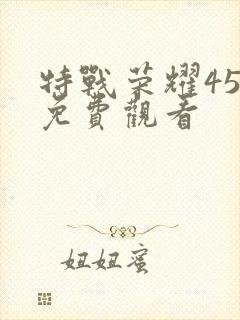 特戰荣耀45
免費觀看
妞妞蜜